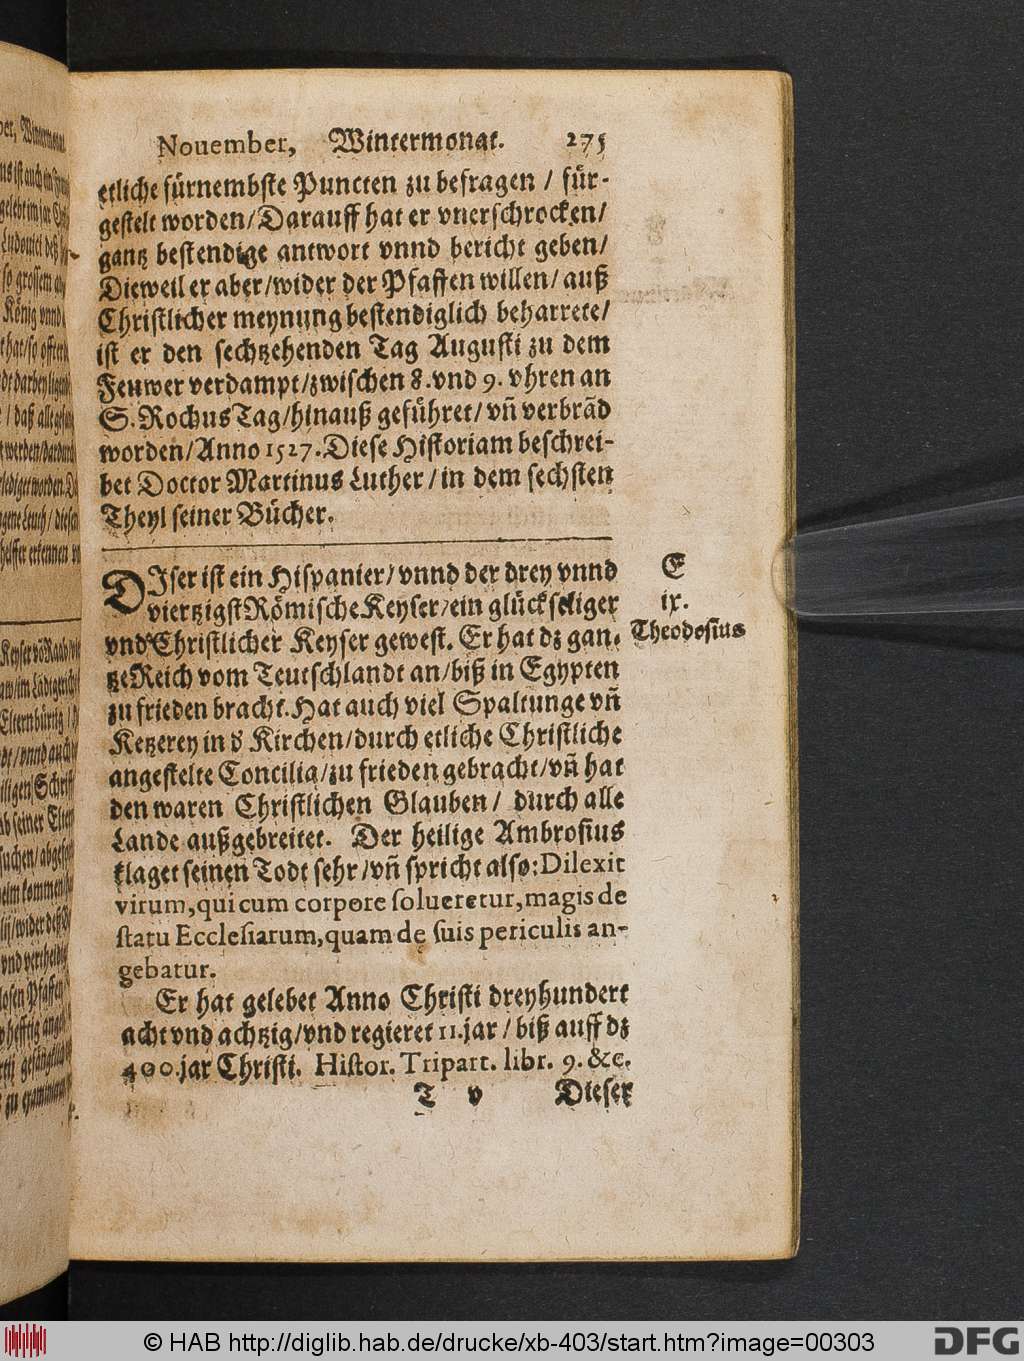 Nouember, Wintermonat. 275
etliche fürnembste Puncten zu befragen / für-
gestelt worden/Darauff hat er vnerschrocken/
gantz bestendige antwort vnnd bericht geben/
Dieweil er aber/wider der Pfaffen willen/auß
Christlicher meynung bestendiglich beharrete/
ist er den sechtzehenden Tag Augusti zu dem
Feuwer verdampt/zwischen 8.vnd 9. vhren an
S. Rochus Tag/hinauß geführet/vñ verbrãd
worden/Anno 1527. Diese Historiam beschrei-
bet Doctor Martinus Luther/in dem sechsten
Theyl seiner Bücher.
DIser ist ein Hispanier/vnnd der drey vnnd
viertzigst Römische Keyser/ein glückseliger
vnd Christlicher Keyser gewest. Er hat dz gan-
tze Reich vom Teutschlandt an/biß in Egypten
zu frieden bracht. Hat auch viel Spaltunge vñ
Ketzerey in d' Kirchen/durch etliche Christliche
angestelte Concilia/zu frieden gebracht/vñ hat
den waren Christlichen Glauben/ durch alle
Lande außgebreitet. Der heilige Ambrosius
klaget seinen Todt sehr/vñ spricht also: Dilexit
virum, qui cum corpore solueretur, magis de
statu Ecclesiarum, quam de suis periculis an-
gebatur.
Er hat gelebet Anno Christi dreyhundert
acht vnd achtzig/vnd regieret 11.jar / biß auff dz
400.jar Christi. Histor. Tripart. libr. 9. &c.
T v Dieser
E
ix.
Theodosius
© HAB http://diglib.hab.de/drucke/xb-403/start.htm?image=00303
DFG